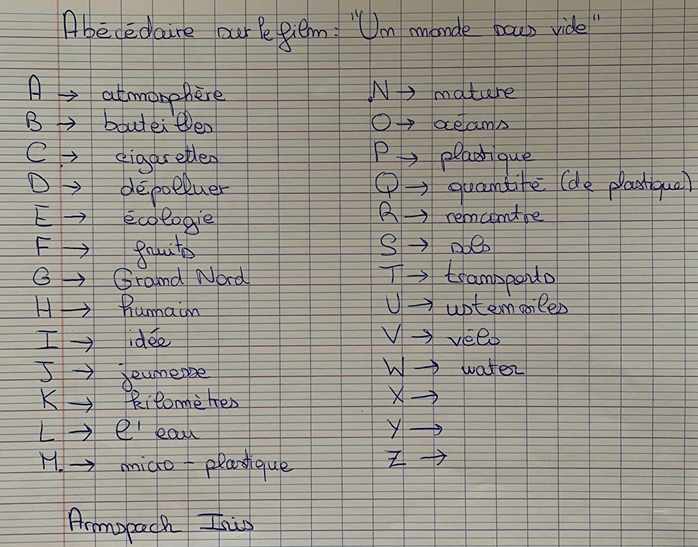 Abécédaire sur le film : "Un monde sous vide"
A → atmosphère
B → bouteilles
C → cigarettes
D → dépolluer
E → écologie
F → fruits
G → Grand Nord
H → humain
I → idée
J → jeunesse
K → kilomètres
L → l'eau
M. → micro-plastique
N → nature
O → océans
P → plastique
Q → quantité (de plastique)
R → rencontre
S → sols
T → transports
U → ustensiles
V → vélo
W → water
X →
Y →
Z →
Armspach Iris